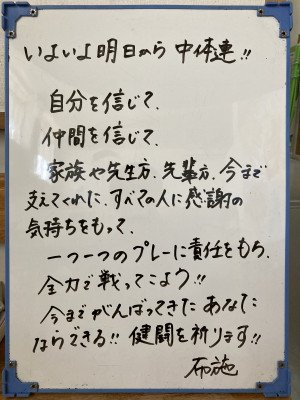 いよいよ明日から 中体連!!
自分を信じて、
仲間を信じて、
家族や先生方、先輩方、今まで
支えてくれた、すべての人に感謝の
気持ちをもって、
一つ一つのプレーに責任をもち、
全力で戦ってこよう!!
今までがんばってきた あなた
ならできる!! 健闘を祈ります!!
布施